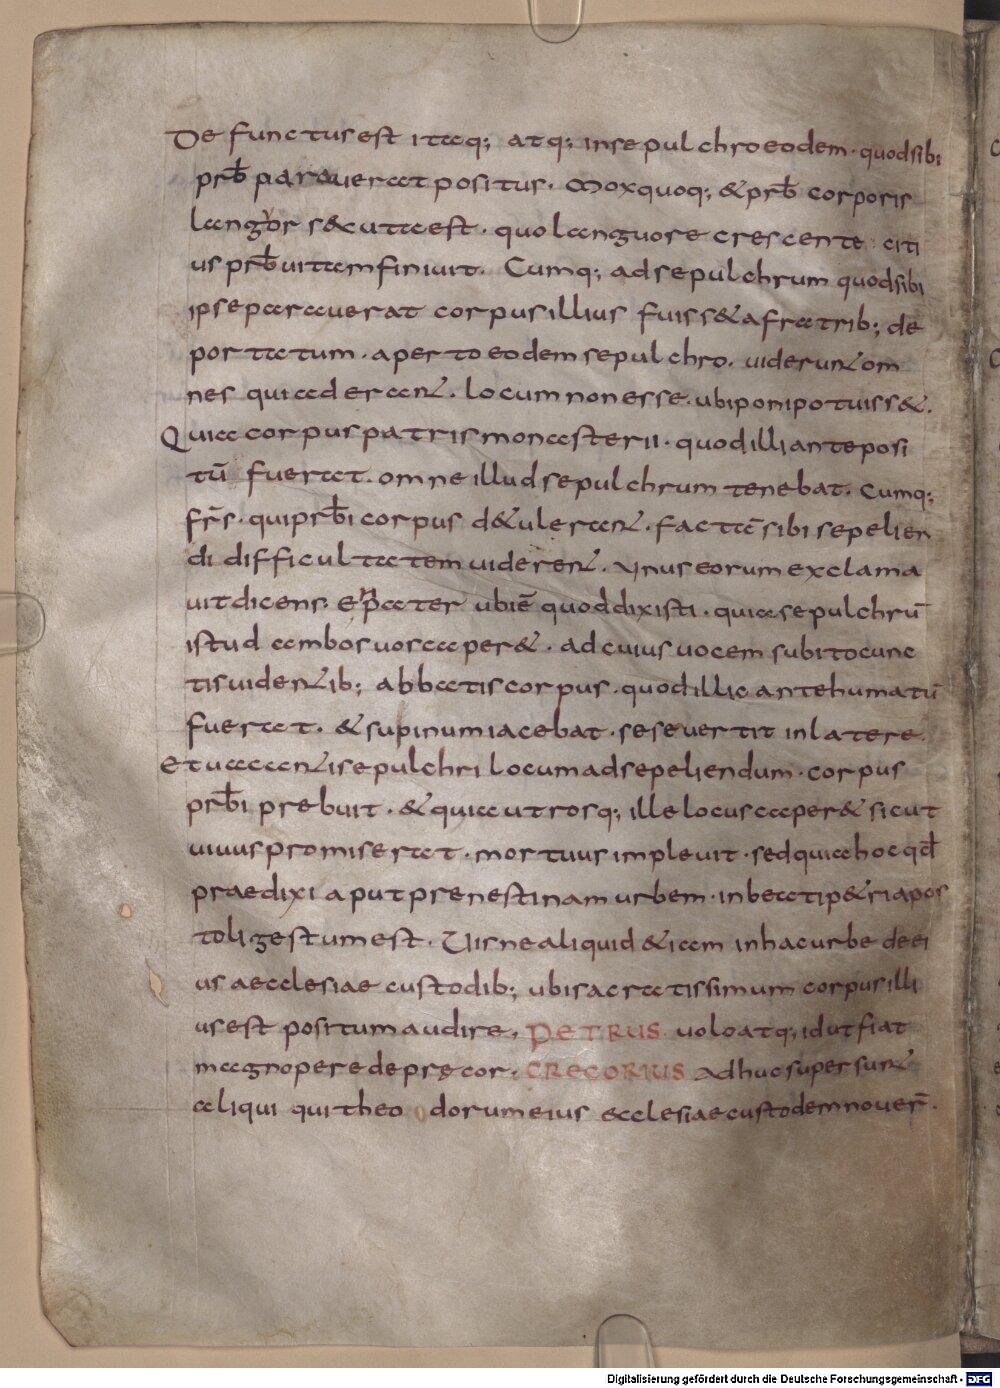 De functus est itaq; atq; in sepulchro eodem · quod sibi
prb̄ parauerat positus · Mox quoq; & prb̄ corporis
langor s&cuta est · quo languore crescente citi
us prb̄ uitam finiuit. Cumq; ad sepulchrum quod sibi
ipse parauerat corpus illius fuiss& a fratrib; de
portatum · aperto eodem sepulchro · uiderunt om
nes qui aderant · locum non esse · ubi poni potuiss& ·
Quia corpus patris monasterii · quod illi ante posi
tū fuerat · omne illud sepulchrum tenebat · Cumq;
fr̄s · qui prb̄i corpus d&ulerant · factā sibi sepelien
di difficultatem uiderent · unus eorum exclama
uit dicens · E pater ubi ē quod dixisti · quia sepulchrū
istud ambos uos caper& · ad cuius uocem subito cunc
tis uidentib; abbatis corpus · quod illic ante humatū
fuerat · & supinum iacebat · sese uertit in latere ·
Et uacantis sepulchri locum ad sepeliendum · corpus
prb̄i prebuit · & quia utrosq; ille locus caper& sicut
uiuus promiserat · mortuus impleuit · sed quia hoc qd̄
praedixi aput prenestinam urbem · in beati p&ri apos
toli gestum est · Uisne aliquid &iam in hac urbe de ei
us aecclesiae custodib; ubi sacratissimum corpus illi
us est positum audire · PETRUS uolo atq; id ut fiat
magnopere deprecor · GREGORIUS Adhuc supersunt
aliqui qui theodorum eius ecclesiae custodem nouer̄ ·
Digitalisierung gefördert durch die Deutsche Forschungsgemeinschaft - DFG